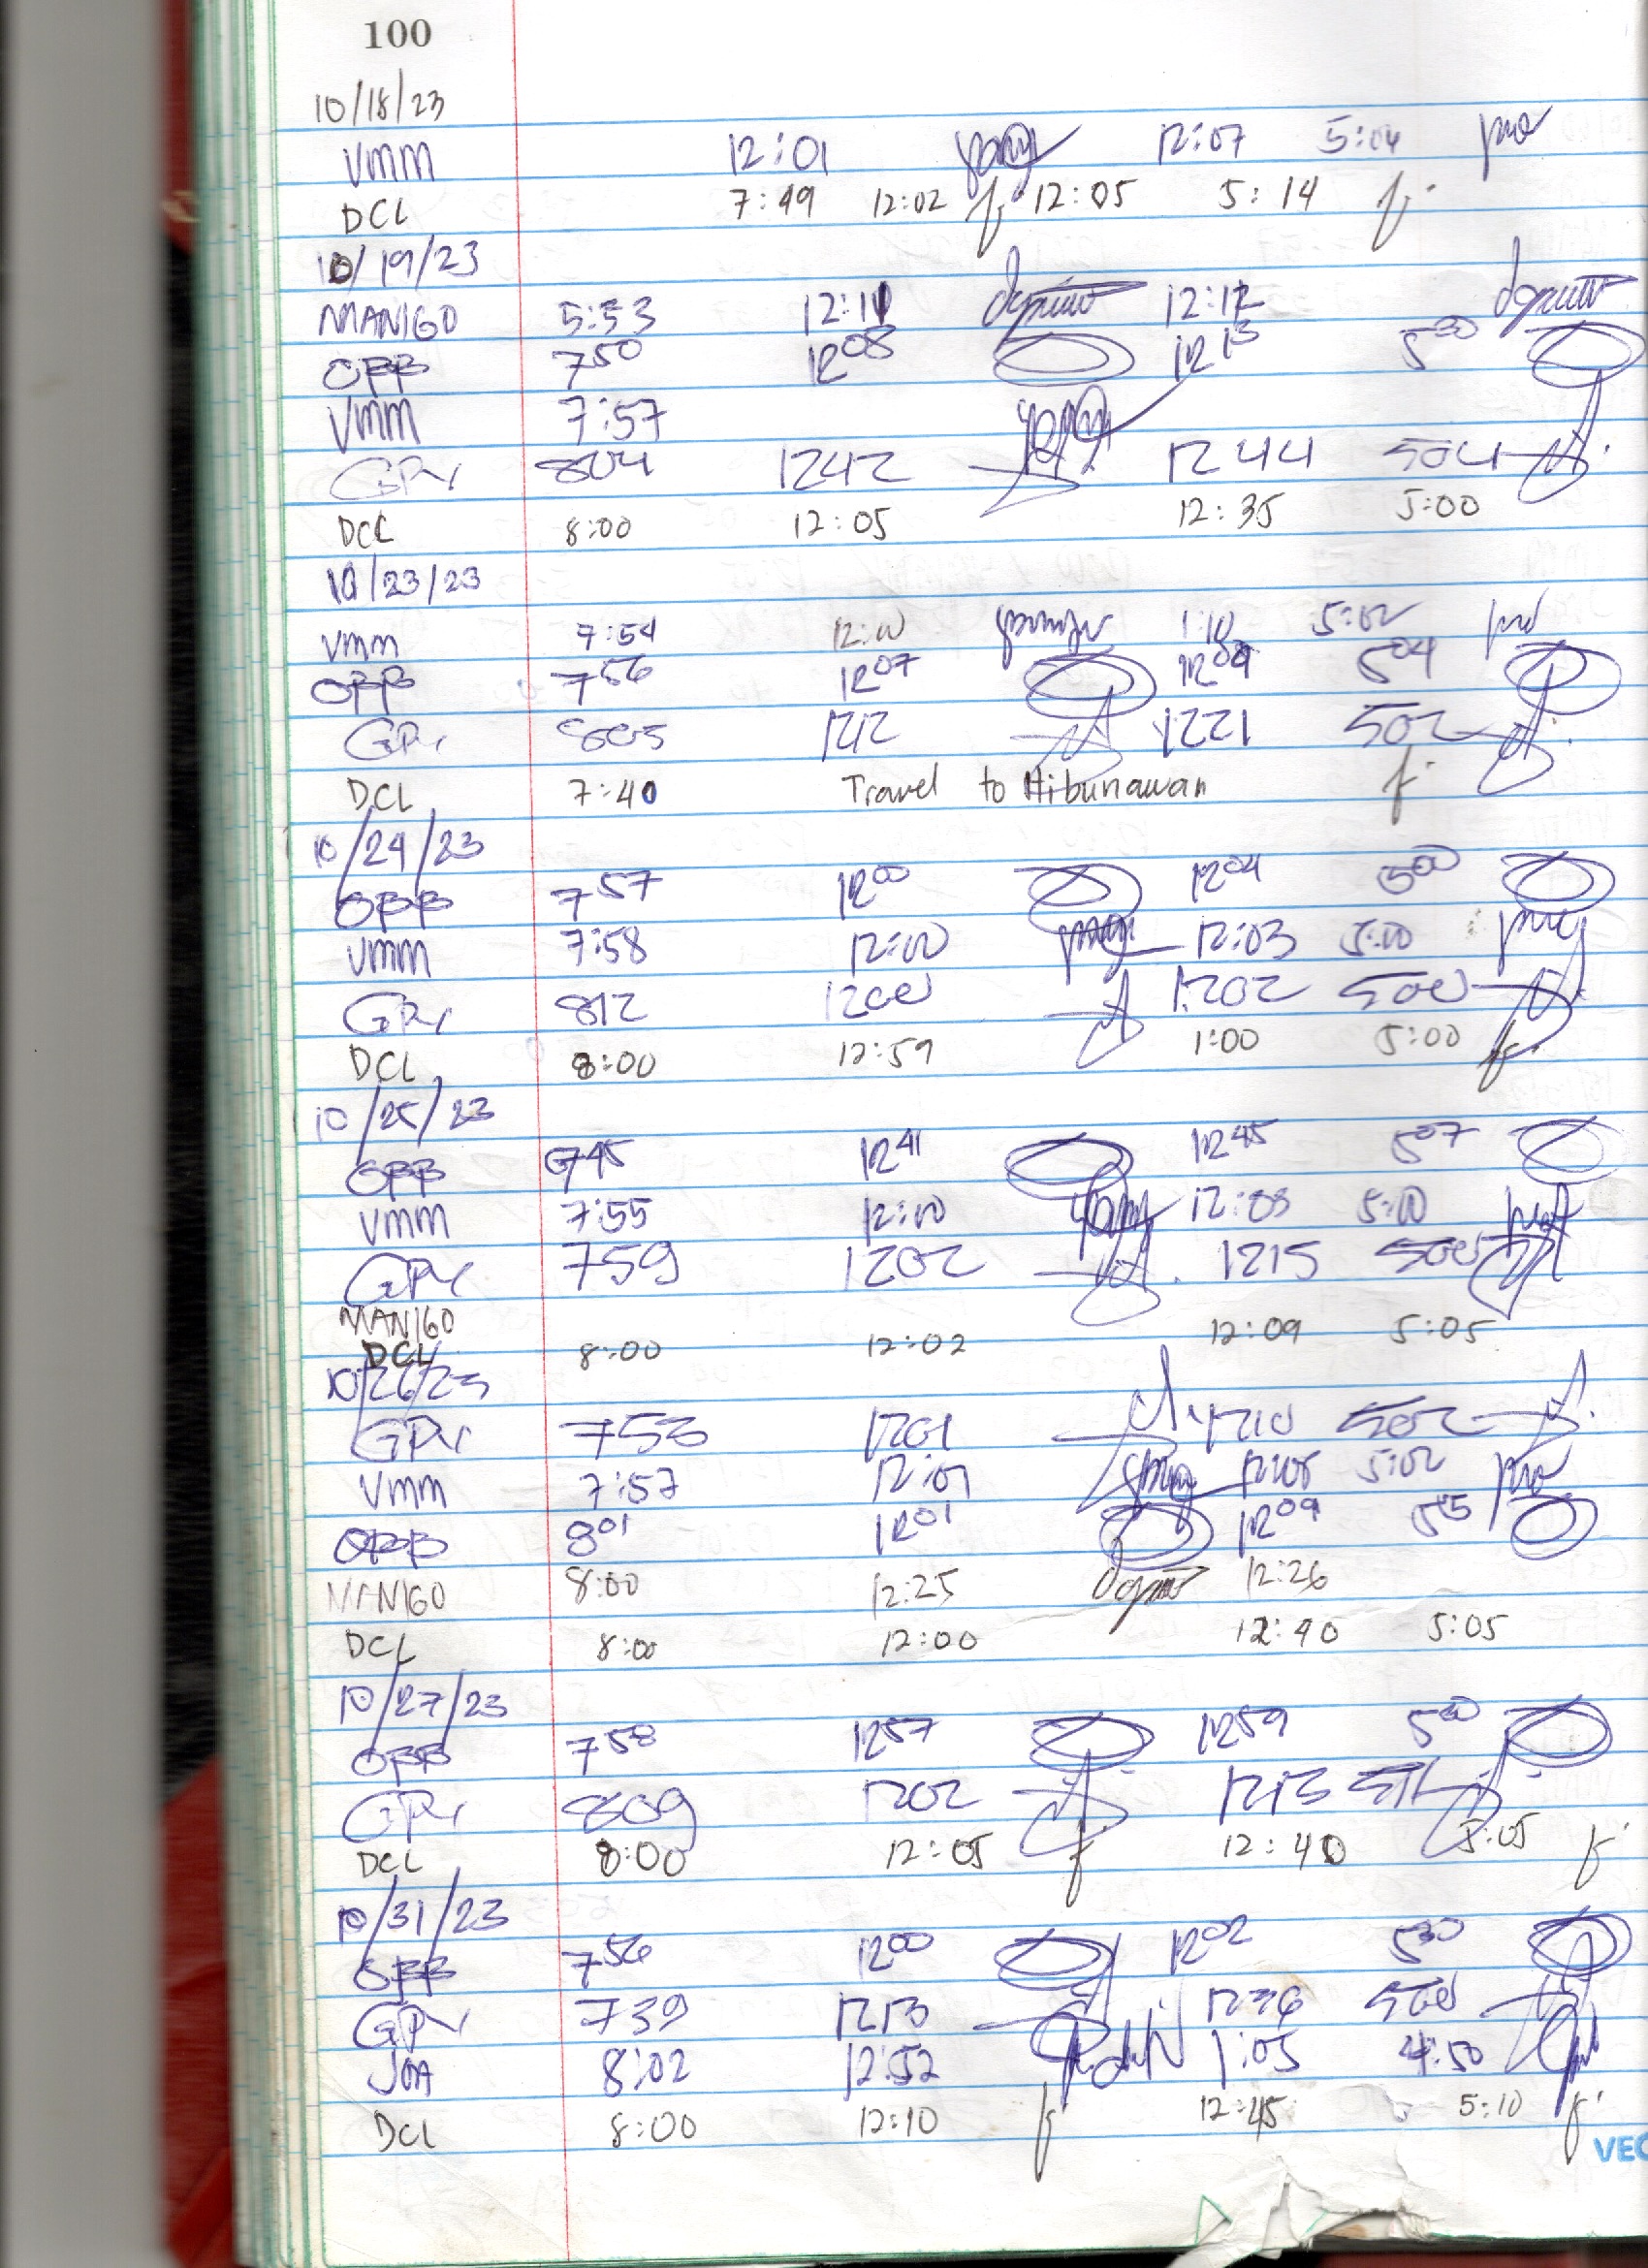 100
10/18/23
VMM 12:01 12:07 5:04
DCL 7:49 12:02 12:05 5:14
10/19/23
MANIGO 5:53 12:11 12:12
OPB 7 50 12 08 12 13 5 30
VMM 7:57
GPY 804 1242 1244 504
DCL 8:00 12:05 12:35 5:00
10/23/23
VMM 7:54 12:00 1:10 5:02
OPB 7 56 12 07 12 09 5 04
GPY 805 1212 1221 502
DCL 7:40 Travel to Hibunawan
10/24/23
OPB 7 57 12 00 12 04 5 00
VMM 7:58 12:00 12:03 5:00
GPY 812 1200 1202 500
DCL 8:00 12:59 1:00 5:00
10/25/23
OPB 7 45 12 41 12 45 5 07
VMM 7:55 12:00 12:08 5:00
GPY 759 1202 1215 500
MANIGO
DCL 8:00 12:02 12:09 5:05
10/26/23
GPY 753 1201 1210 502
VMM 7:57 12:01 12:08 5:02
OPB 8 01 12 01 12 09 5 15
MANIGO 8:00 12:25 12:26
DCL 8:00 12:00 12:40 5:05
10/27/23
OPB 7 58 12 57 12 59 5 00
GPY 809 1202 1213
DCL 8:00 12:05 12:40 5:05
10/31/23
OPB 7 56 12 00 12 02 5 30
GPY 739 1213 1236 500
JOA 8:02 12:52 1:05 4:50
DCL 8:00 12:10 12:45 5:10
VEC